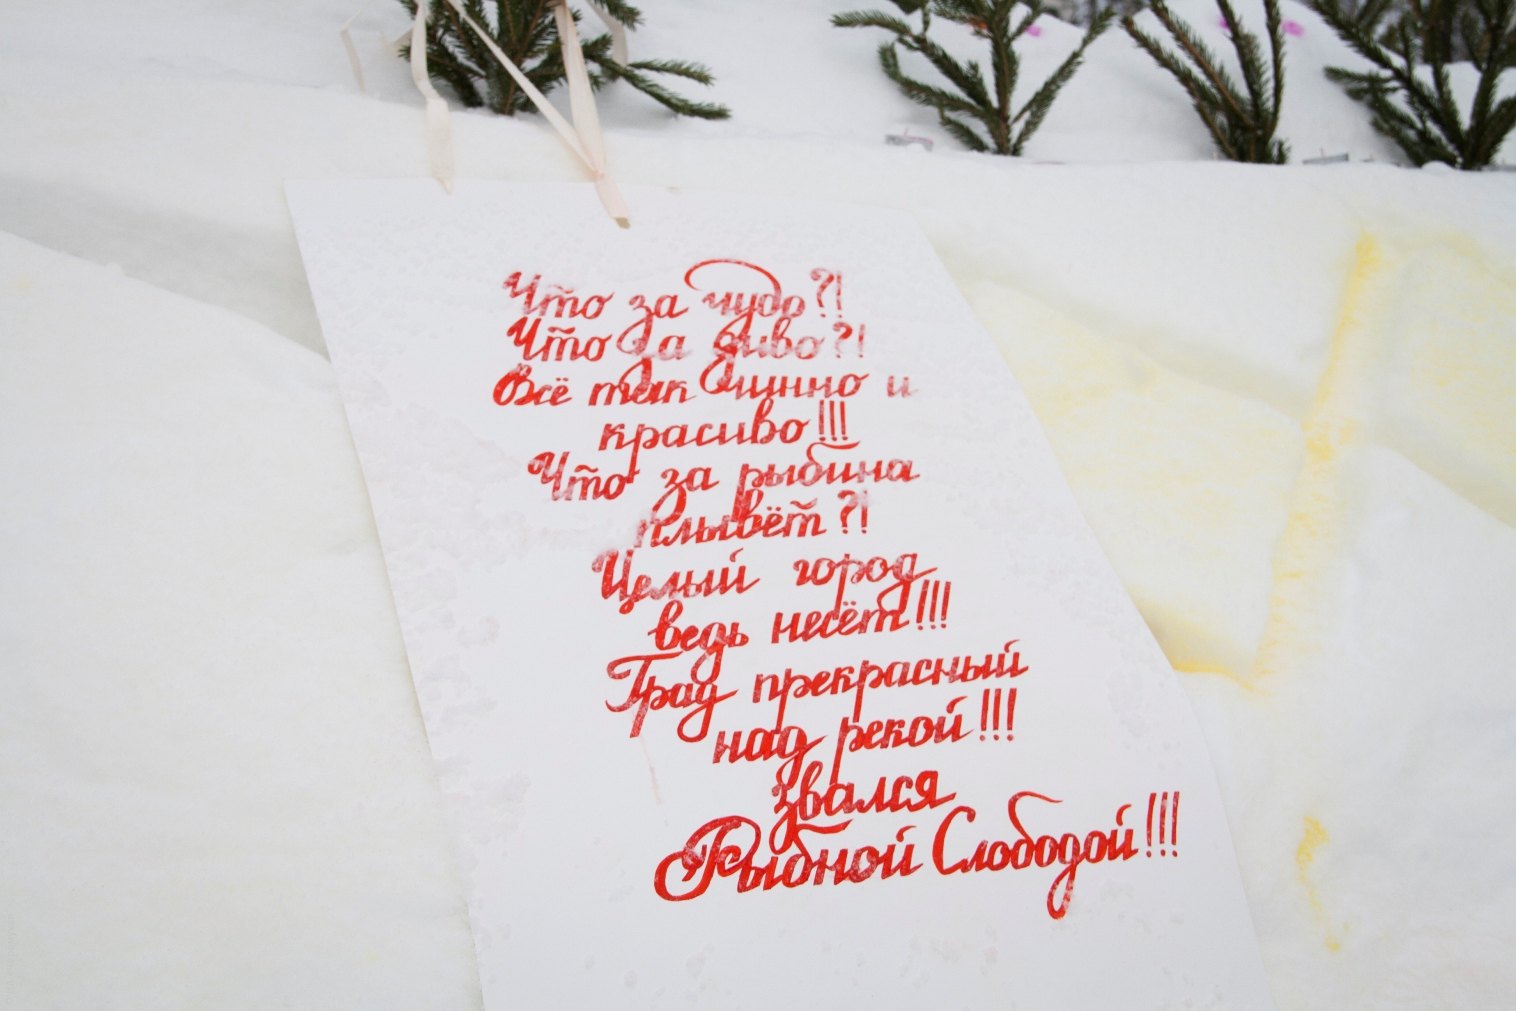 Что за чудо?!
Что за диво?!
Всё так чинно и
красиво!!!
Что за рыбина
плывёт?!
Целый город
ведь несёт!!!
Град прекрасный
над рекой!!!
звался
Рыбной Слободой!!!